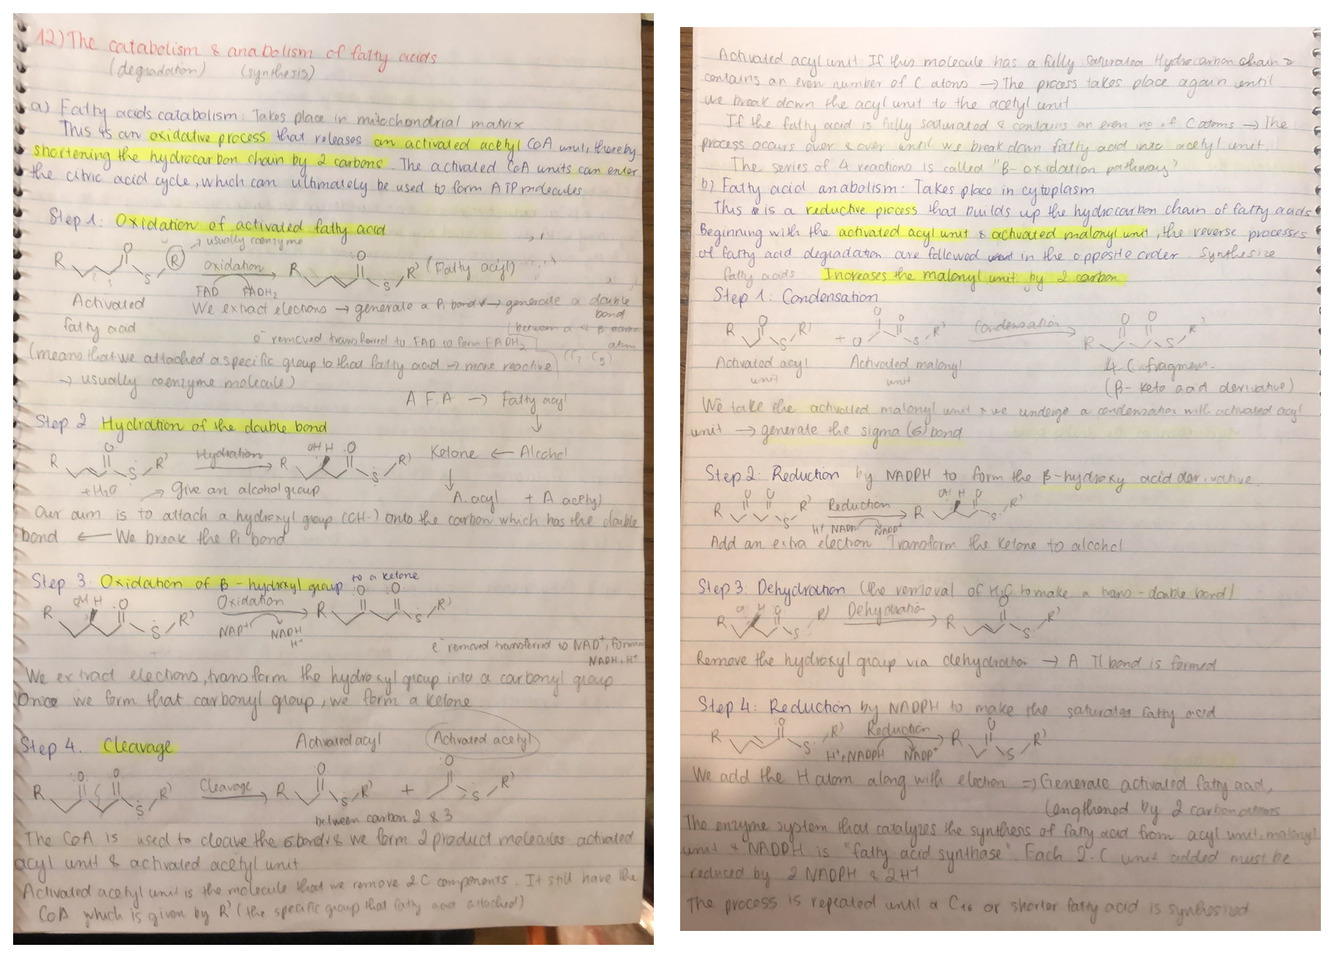 12) The catabolism & anabolism of fatty acids
(degradation) (synthesis)
a) Fatty acids catabolism: Takes place in mitochondrial matrix
This is an oxidative process that releases an activated acetyl CoA unit, thereby
shortening the hydrocarbon chain by 2 carbons. The activated CoA units can enter
the citric acid cycle, which can ultimately be used to form ATP molecules
Step 1: Oxidation of activated fatty acid
→ usually coenzyme
R O S R' oxidation FAD FADH2 R O S R' (Fatty acyl)
Activated We extract electrons → generate a Pi bond → generate a double
bond
fatty acid
between α & β carbon
atom
e- removed transferred to FAD to form FADH2
(means that we attached a specific group to that fatty acid → more reactive
→ usually coenzyme molecule)
A F.A → Fatty acyl
Step 2 Hydration of the double bond
R O S R' Hydration R OH H O S R' Ketone ← Alcohol
+H2O → Give an alcohol group A. acyl + A acetyl
Our aim is to attach a hydroxyl group (OH-) onto the carbon which has the double
bond ← We break the Pi bond
Step 3: Oxidation of β-hydroxyl group to a ketone
R OH H O S R' Oxidation NAD+ NADH H+ R O O S R'
e- removed transferred to NAD+, form
NADH, H+
We extract electrons, transform the hydroxyl group into a carbonyl group
Once we form that carbonyl group, we form a ketone
Step 4. Cleavage Activated acyl Activated acetyl
R O O S R' Cleavage R O S R' + O S R'
between carbon 2 & 3
The CoA is used to cleave the σ bond & we form 2 product molecules activated
acyl unit & activated acetyl unit
Activated acetyl unit is the molecule that we remove 2C components. It still have the
CoA which is given by R' (the specific group that fatty acid attached)
Activated acyl unit If this molecule has a fully saturated Hydrocarbon chain &
contains an even number of C atoms → The process takes place again until
we break down the acyl unit to the acetyl unit
If the fatty acid is fully saturated & contains an even no. of C atoms → The
process occurs over & over until we break down fatty acid into acetyl unit.
The series of 4 reactions is called "β-oxidation pathway"
b) Fatty acid anabolism: Takes place in cytoplasm
This is a reductive process that builds up the hydrocarbon chain of fatty acids
Beginning with the activated acyl unit & activated malonyl unit, the reverse processes
of fatty acid degradation are followed in the opposite order. Synthesize
fatty acids Increases the malonyl unit by 2 carbon
Step 1: Condensation
R O S R' + O O O S R' Condensation R O O S R'
Activated acyl Activated malonyl 4 C fragment
unit unit (β-keto acid derivative)
We take the activated malonyl unit & we undergo a condensation with activated acyl
unit → generate the sigma (σ) bond
Step 2: Reduction by NADPH to form the β-hydroxy acid derivative
R O O S R' Reduction H+ NADPH NADP+ R OH H O S R'
Add an extra electron Transform the ketone to alcohol
Step 3: Dehydration (the removal of H2O to make a trans-double bond)
R O H O S R' Dehydration R O S R'
Remove the hydroxyl group via dehydration → A π bond is formed
Step 4: Reduction by NADPH to make the saturated fatty acid
R O S R' Reduction H+, NADPH NADP+ R O S R'
We add the H atom along with electron ⇒ Generate activated fatty acid,
lengthened by 2 carbon atoms
The enzyme system that catalyzes the synthesis of fatty acid from acyl unit, malonyl
unit & NADPH is "fatty acid synthase". Each 2-C unit added must be
reduced by 2 NADPH & 2H+
The process is repeated until a C16 or shorter fatty acid is synthesised